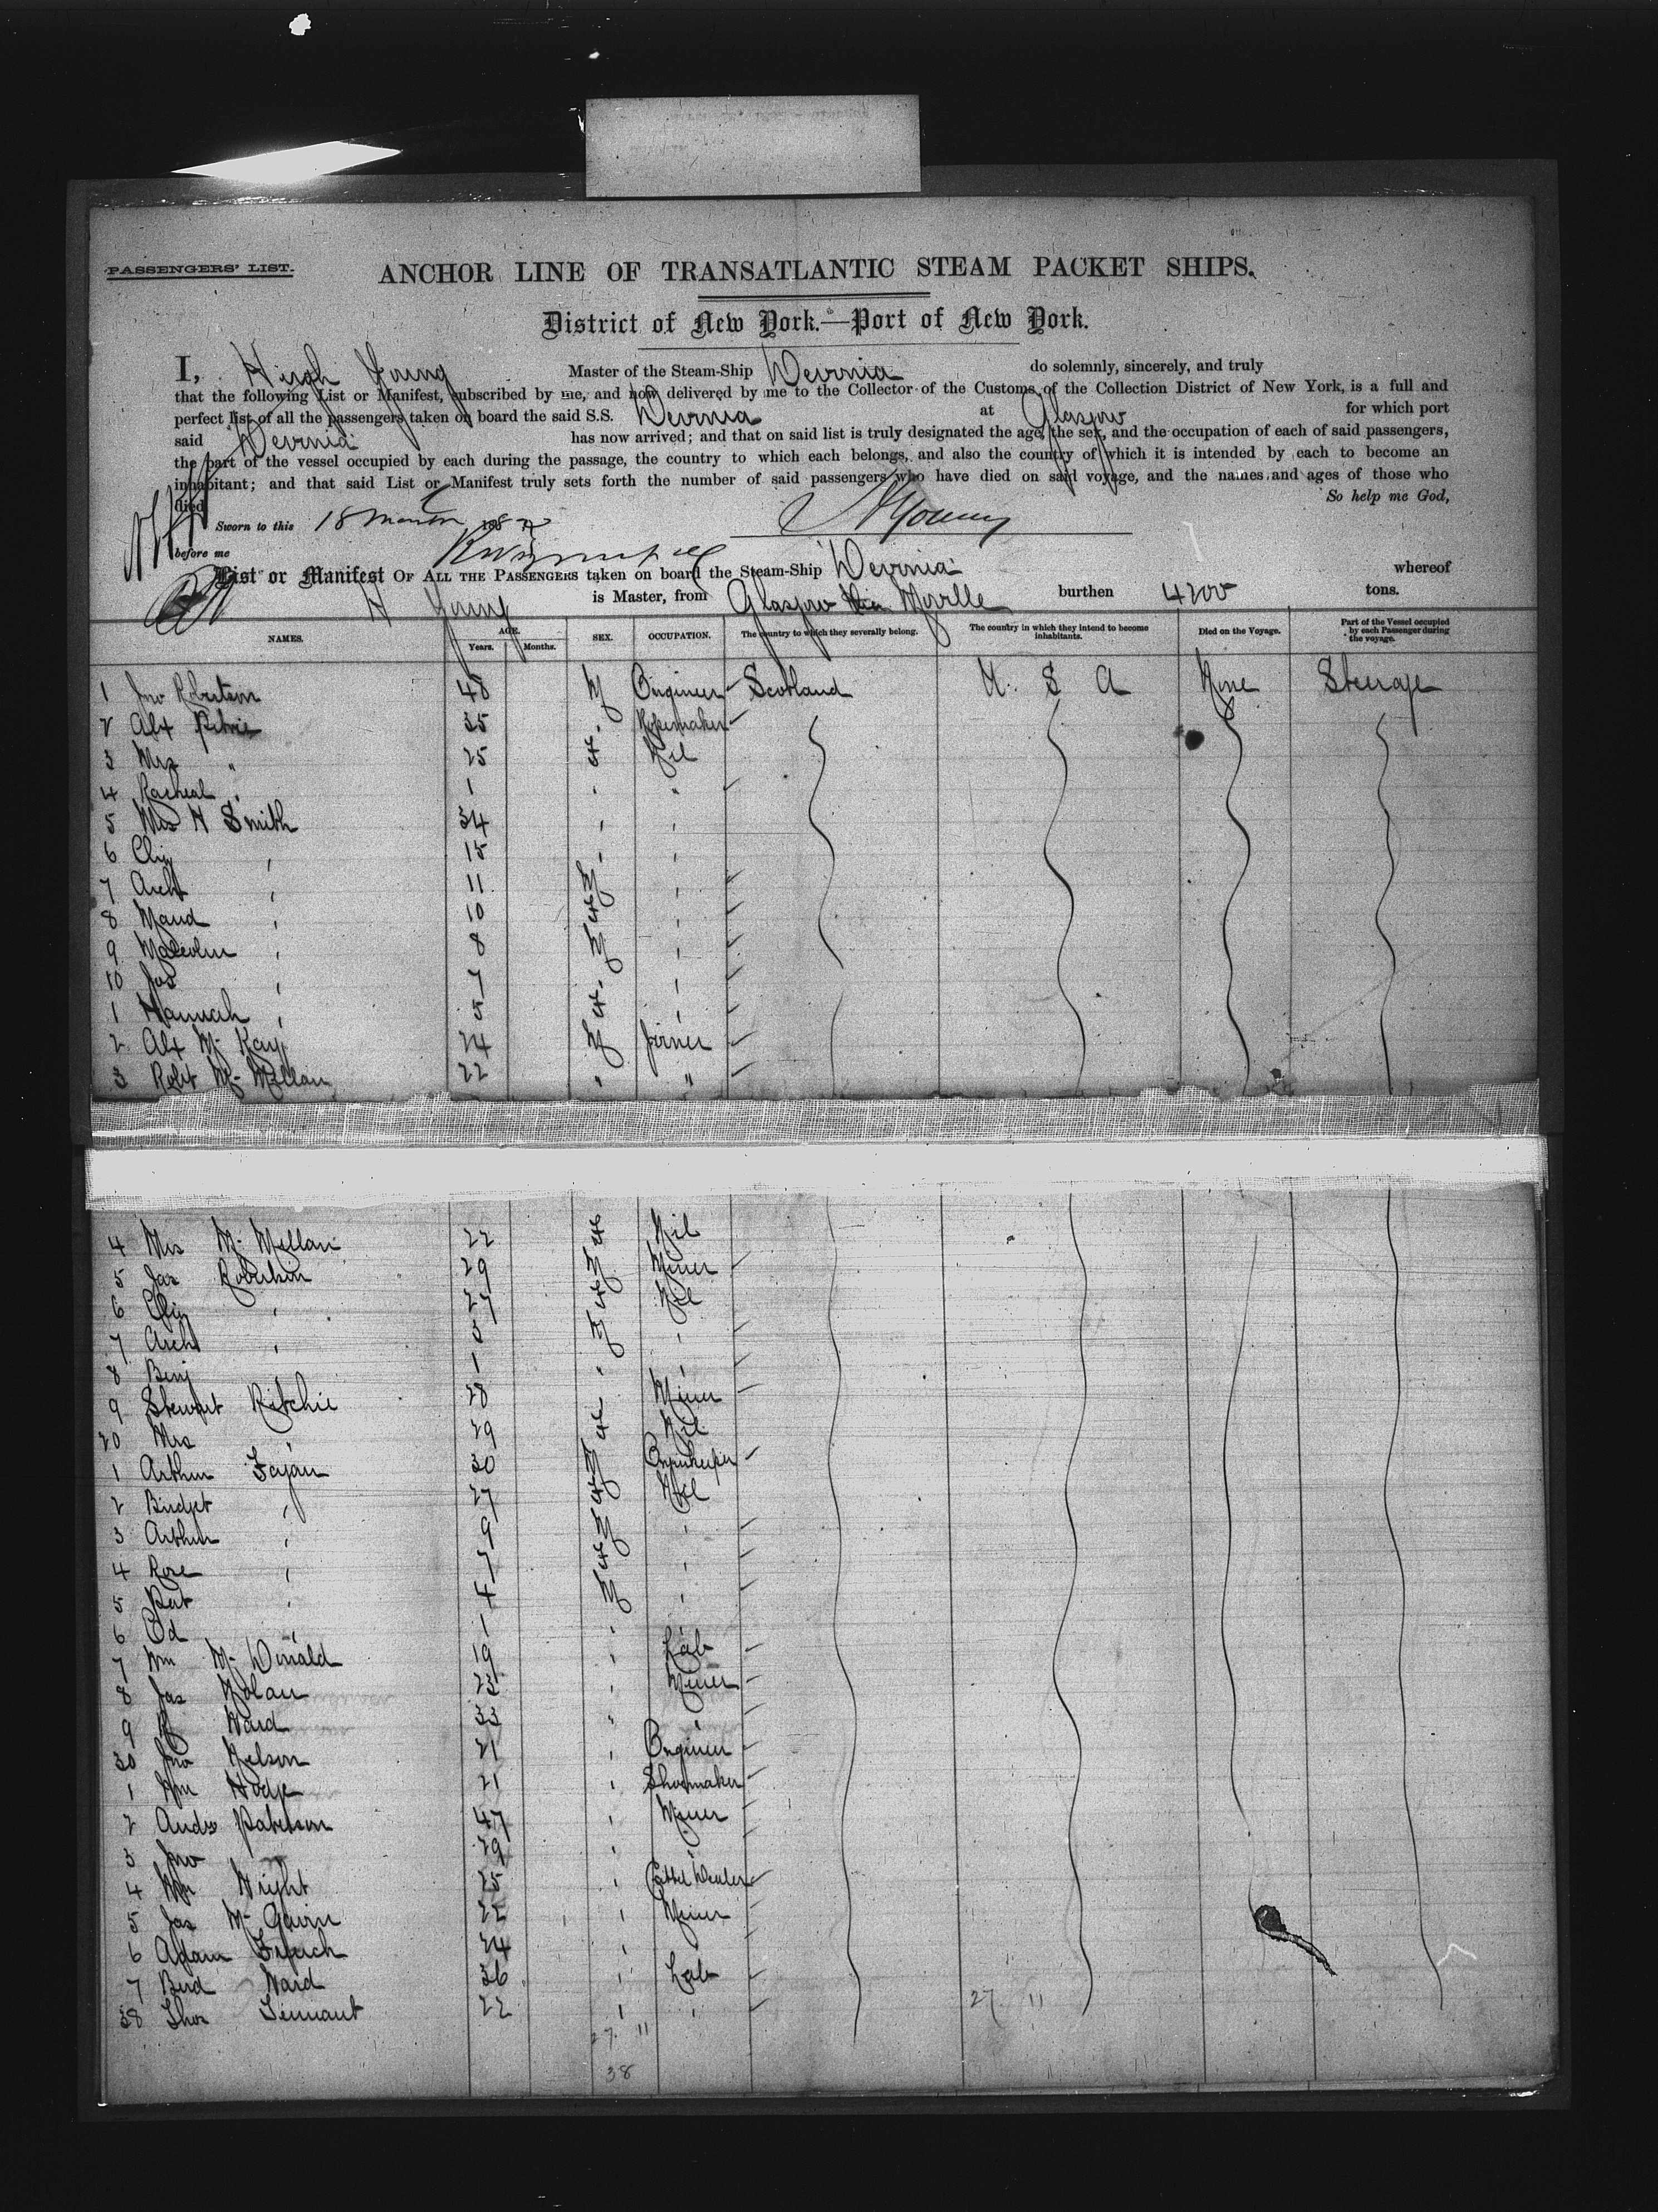 PASSENGERS' LIST.
ANCHOR LINE OF TRANSATLANTIC STEAM PACKET SHIPS.
District of New York.—Port of New York.
I, Hugh Young Master of the Steam-Ship Devonia do solemnly, sincerely, and truly
that the following List or Manifest, subscribed by me, and now delivered by me to the Collector of the Customs of the Collection District of New York, is a full and
perfect list of all the passengers taken on board the said S.S. Devonia at Glasgow for which port
said Devonia has now arrived; and that on said list is truly designated the age, the sex, and the occupation of each of said passengers,
the part of the vessel occupied by each during the passage, the country to which each belongs, and also the country of which it is intended by each to become an
inhabitant; and that said List or Manifest truly sets forth the number of said passengers who have died on said voyage, and the names and ages of those who
died. So help me God,
Sworn to this 18 March 188 H Young
before me
List or Manifest OF ALL THE PASSENGERS taken on board the Steam-Ship Devonia whereof
H Young is Master, from Glasgow Moville burthen 4200 tons.
NAMES. AGE. Years. Months. SEX. OCCUPATION. The country to which they severally belong. The country in which they intend to become inhabitants. Died on the Voyage. Part of the Vessel occupied by each Passenger during the voyage.
1 Jno Robertson 48 M Engineer Scotland U. S A None Steerage
2 Alx Petrie 35 " Ropemaker
3 Mrs " 25 F Nil
4 Racheal " 1 " "
5 Mrs H Smith 34 " "
6 Eliz " 15 " "
7 Archd " 11 M "
8 Maud " 10 F "
9 Malcolm " 8 M "
10 Jas " 7 " "
1 Hannah " 5 F "
2 Alx Mc Kay 24 M Joiner
3 Robt Mc Millan 22 " "
4 Mrs Mc Millan 22 F Nil
5 Jas Robertson 29 M Miner
6 Eliz " 27 F Nil
7 Archd " 3 M "
8 Benj " 1 " "
9 Stewart Ritchie 28 Miner
20 Mrs " 29 F Nil
1 Arthur Fagan 30 M
2 Bridget " 27 F Nil
3 Arthur " 9 M "
4 Rose " 7 F "
5 " 4 M "
6 Ed " 1 " "
7 Wm Mc Donald 19 " Lab
8 Jas Nolan 23 " Miner
9 Ward 33 " "
30 Jno Nelson 21 " Engineer
1 Wm Hodge 21 " Shoemaker
2 Andw Paterson 47 " Miner
3 Jno " 29 " "
4 Wm Wright 25 " Cattle Dealer
5 Jas Mc Gavin 22 " Miner
6 Adam French 24 "
7 Ward 36 " Lab
38 Thos Tennant 22 " "
27 11
27 11
38